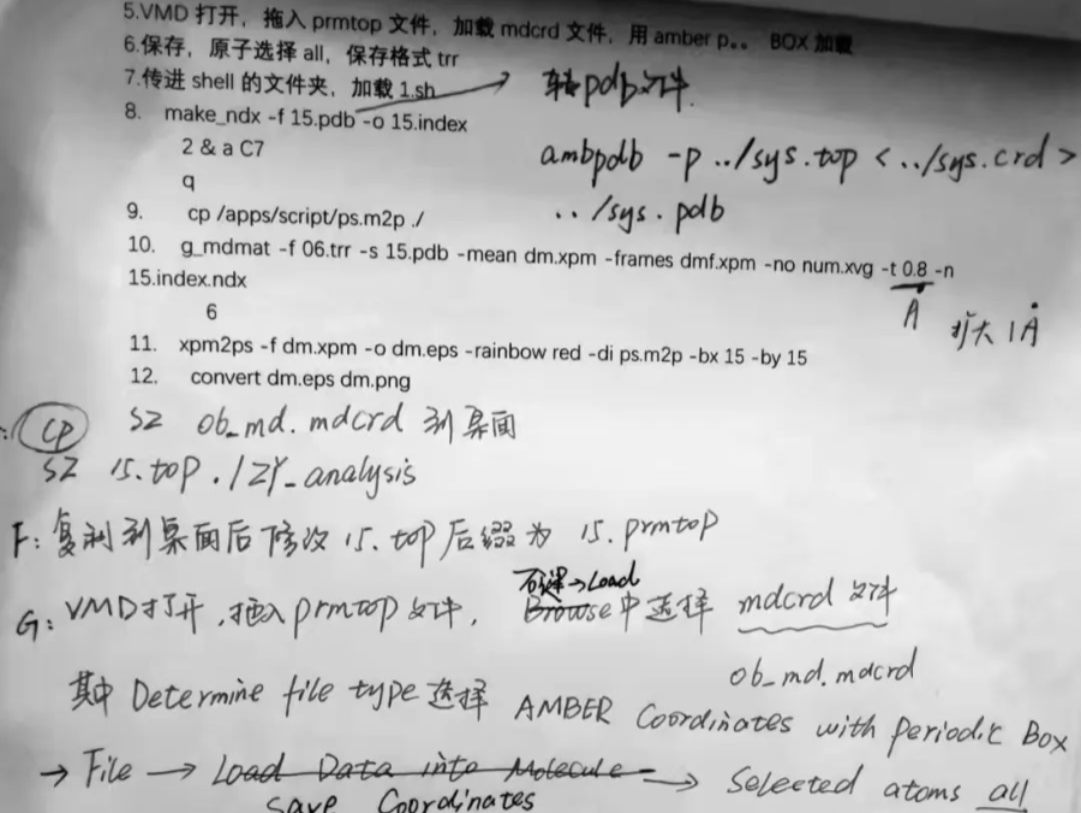 5.VMD 打开，拖入 prmtop 文件，加载 mdcrd 文件，用 amber p。。 BOX 加载
6.保存，原子选择 all，保存格式 trr
7.传进 shell 的文件夹，加载 1.sh
转pdb文件.
8. make_ndx -f 15.pdb -o 15.index
2 & a C7
q
ambpdb -p ../sys.top < ../sys.crd >
../sys.pdb
9. cp /apps/script/ps.m2p ./
10. g_mdmat -f 06.trr -s 15.pdb -mean dm.xpm -frames dmf.xpm -no num.xvg -t 0.8 -n
15.index.ndx
6
Å 扩大 1Å
11. xpm2ps -f dm.xpm -o dm.eps -rainbow red -di ps.m2p -bx 15 -by 15
12. convert dm.eps dm.png
cp sz 06_md.mdcrd 到桌面
sz 15.top ./ZY_analysis
F: 复制到桌面后修改 15.top后缀为 15.prmtop
右键→Load
G: VMD打开,拖入prmtop文件, Browse中选择 mdcrd 文件
06_md.mdcrd
其中 Determine file type 选择 AMBER Coordinates with Periodic Box
→ File → Load Data into Molecule → Selected atoms all
Save Coordinates